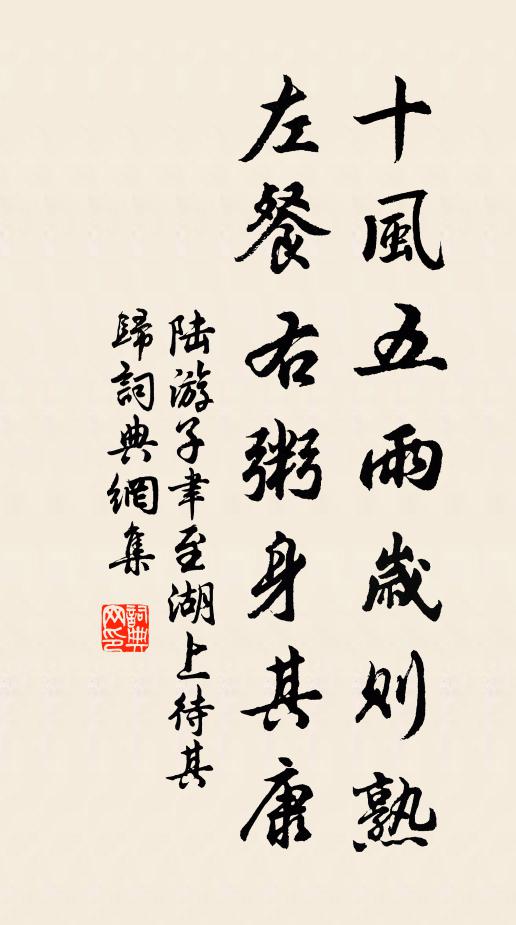 十風五雨歲則熟
左餐右粥身其康
陸游子聿至湖上待其
歸詞典網集
詞典
网印